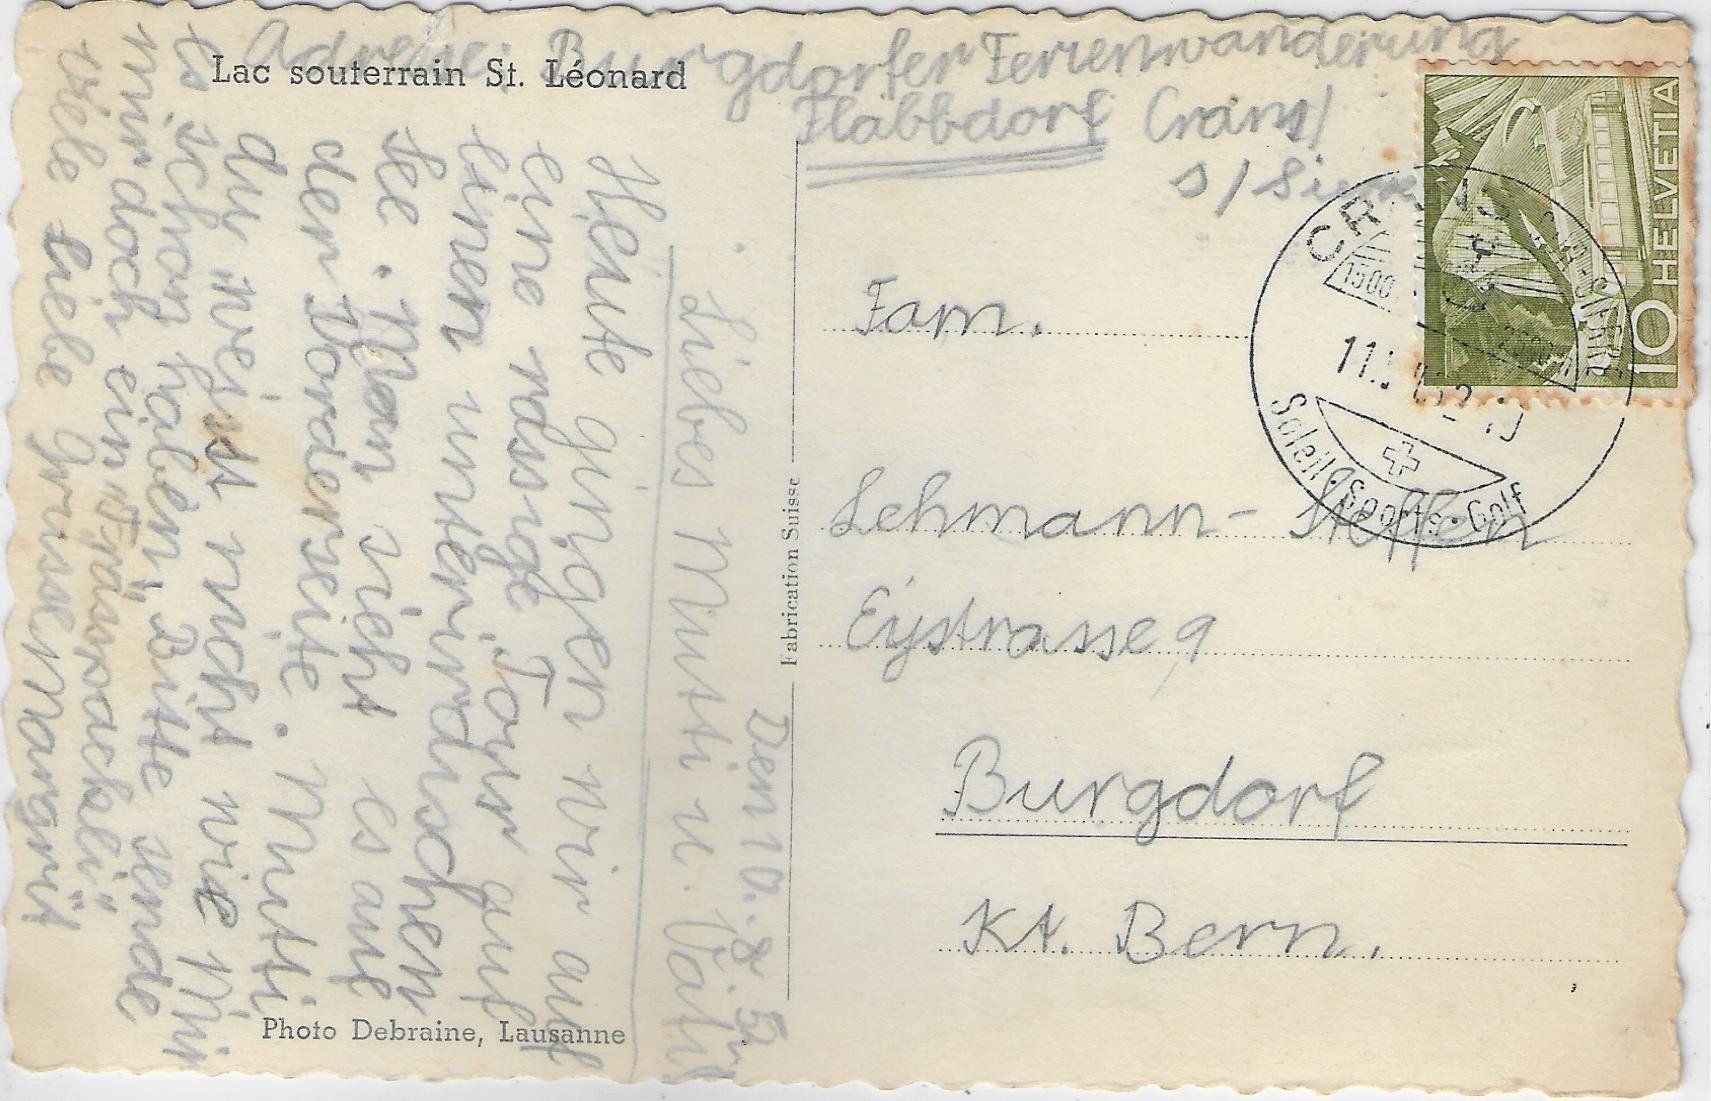 Lac souterrain St. Léonard
Adresse: Burgdorfer Ferienwanderung
Crans/
s/Sierre
Den 10. 8.
Liebes Mutti u. Vati
Heute gingen wir auf
eine rassige Tour auf
einen unterirdischen
See. Man sieht es auf
der Vorderseite. Mutti
du weisst nicht wie Mir
es schon haben. Bitte sende
mir doch ein
Viele liebe Grüsse Margrit
Photo Debraine, Lausanne
Fabrication Suisse
Fam.
Lehmann-Steffen
Eystrasse 9
Burgdorf
Kt. Bern.
HELVETIA
10
CRANS
1500
11.
Soleil • Sports • Golf